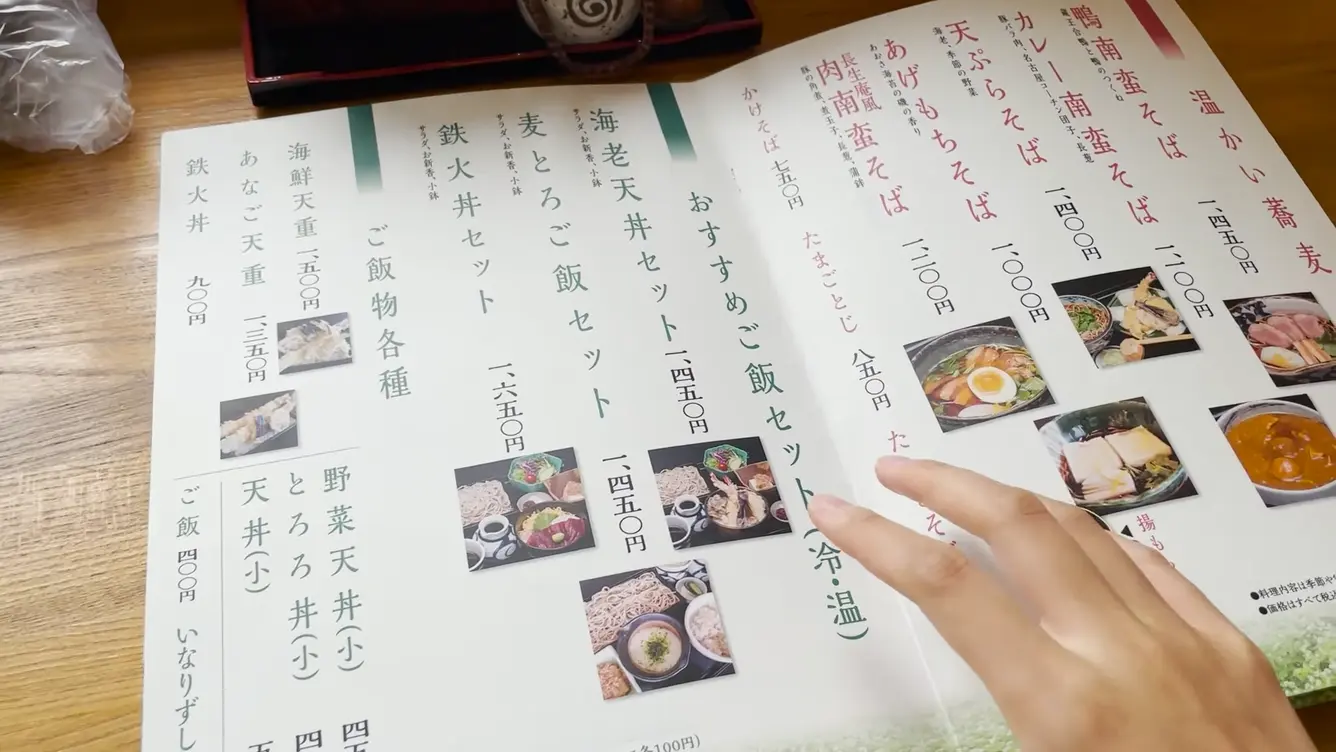 温かい蕎麦
鴨南蛮そば 一、四五〇円
蔵王合鴨と鴨のつくね
カレー南蛮そば 一、一〇〇円
豚バラ肉、名古屋コーチン団子、長葱
天ぷらそば 一、四〇〇円
海老、季節の野菜
あげもちそば 一、〇〇〇円
あおさ海苔の磯の香り
長生庵風
肉南蛮そば 一、二〇〇円
豚の角煮、煮玉子、長葱、蒲鉾
かけそば 七五〇円 たまごとじ 八五〇円 た
そ
揚も
●料理内容は季節や
●価格はすべて税込
おすすめご飯セット(冷・温)
海老天丼セット 一、四五〇円
サラダ、お新香、小鉢
麦とろご飯セット 一、四五〇円
サラダ、お新香、小鉢
鉄火丼セット 一、六五〇円
サラダ、お新香、小鉢
ご飯物各種
海鮮天重 一、五〇〇円
あなご天重 一、三五〇円
鉄火丼 九〇〇円
野菜天丼(小) 四五
とろろ丼(小) 四
天丼(小) 五
ご飯 四〇〇円 いなりずし
各100円)